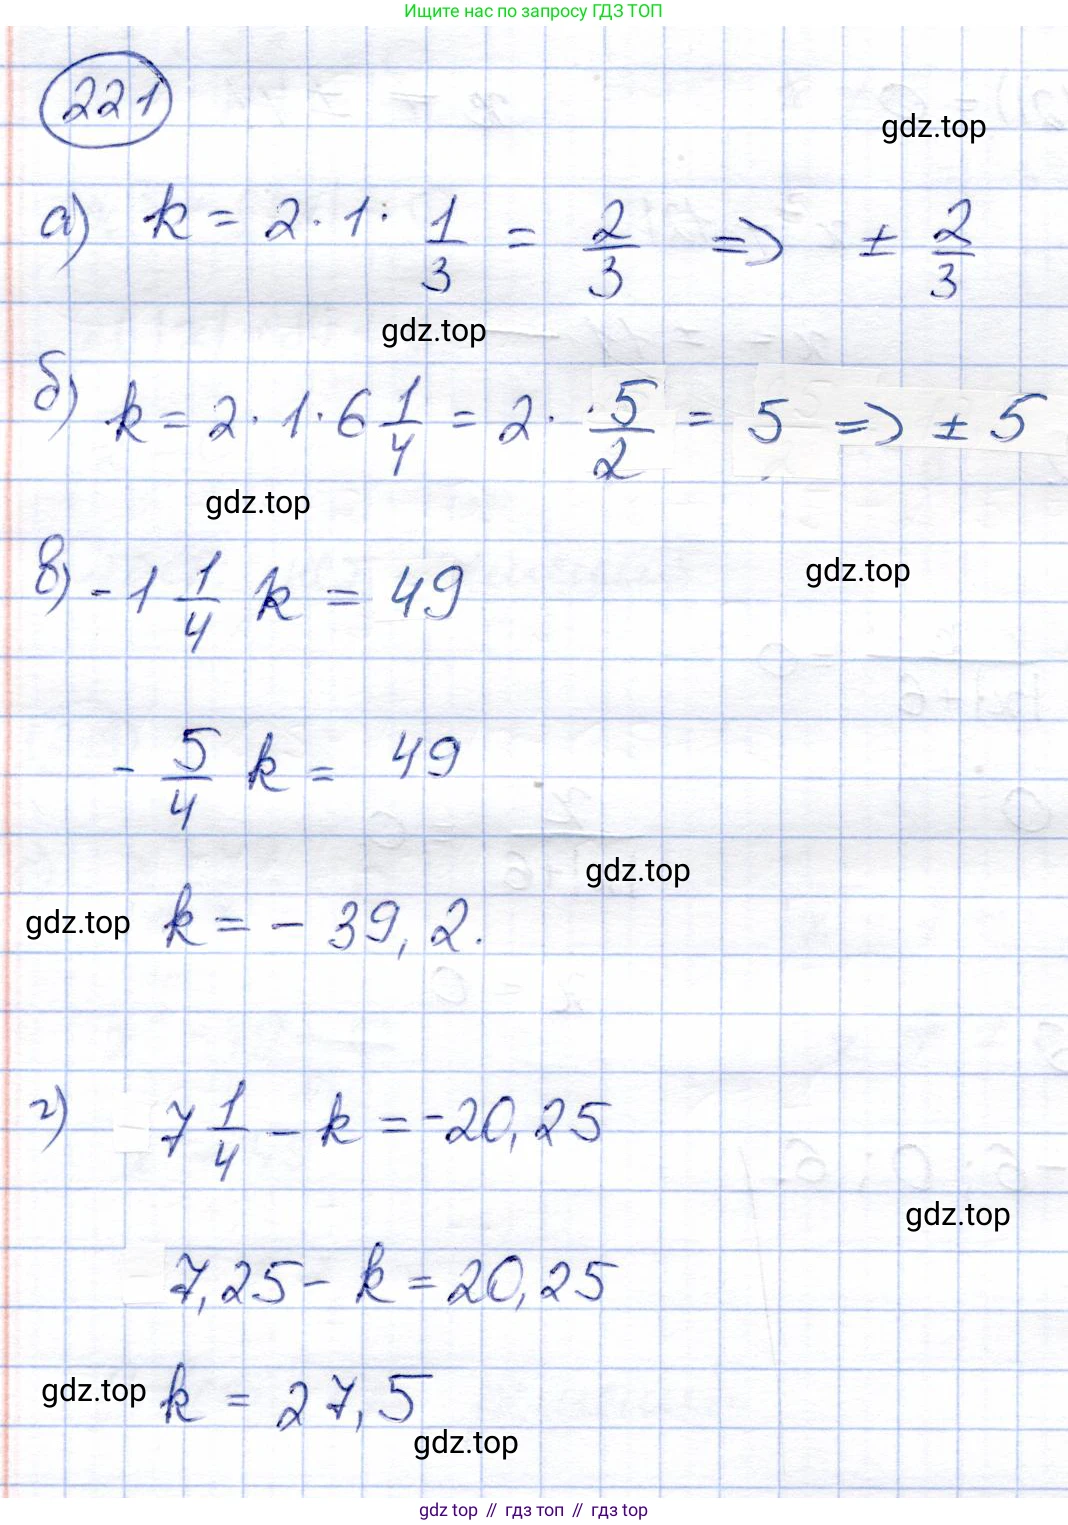 Ищите нас по запросу ГДЗ ТОП
221
gdz.top
а) k = 2 · 1 · 1/3 = 2/3 => ± 2/3
gdz.top
б) k = 2 · 1 · 6 1/4 = 2 · 5/2 = 5 => ± 5
gdz.top
gdz.top
в) - 1 1/4 k = 49
- 5/4 k = 49
gdz.top
gdz.top
k = - 39,2.
г) 7 1/4 - k = -20,25
gdz.top
7,25 - k = 20,25
gdz.top
k = 27,5
gdz.top
gdz top // гдз топ // гдз top